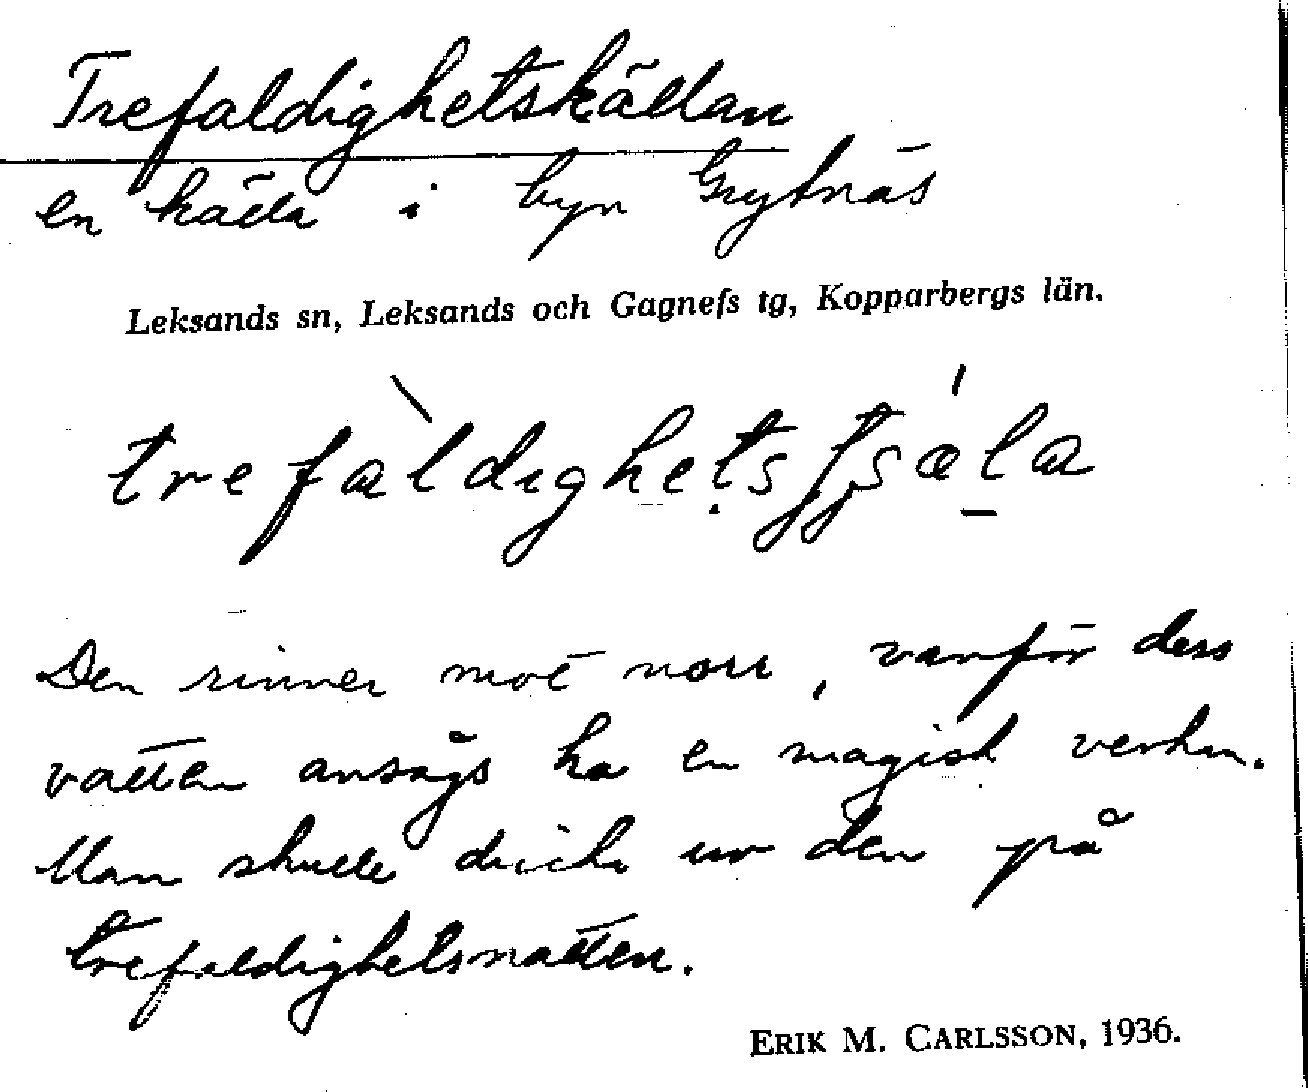 Trefaldighetskällan
en källa i byn Grytnäs
Leksands sn, Leksands och Gagnefs tg, Kopparbergs län.
trefàldighets
Den rinner mot norr, varför dess
vatten ansågs ha en magisk verkan.
Man skulle dricka ur den på
trefaldighetsnatten.
ERIK M. CARLSSON, 1936.